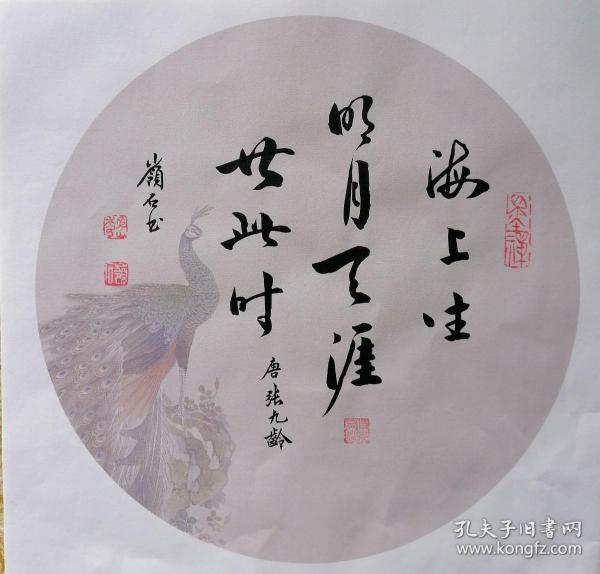 海上生
明月天涯
共此时
唐張九齡
嶺石书
孔夫子旧書网
www.kongfz.com